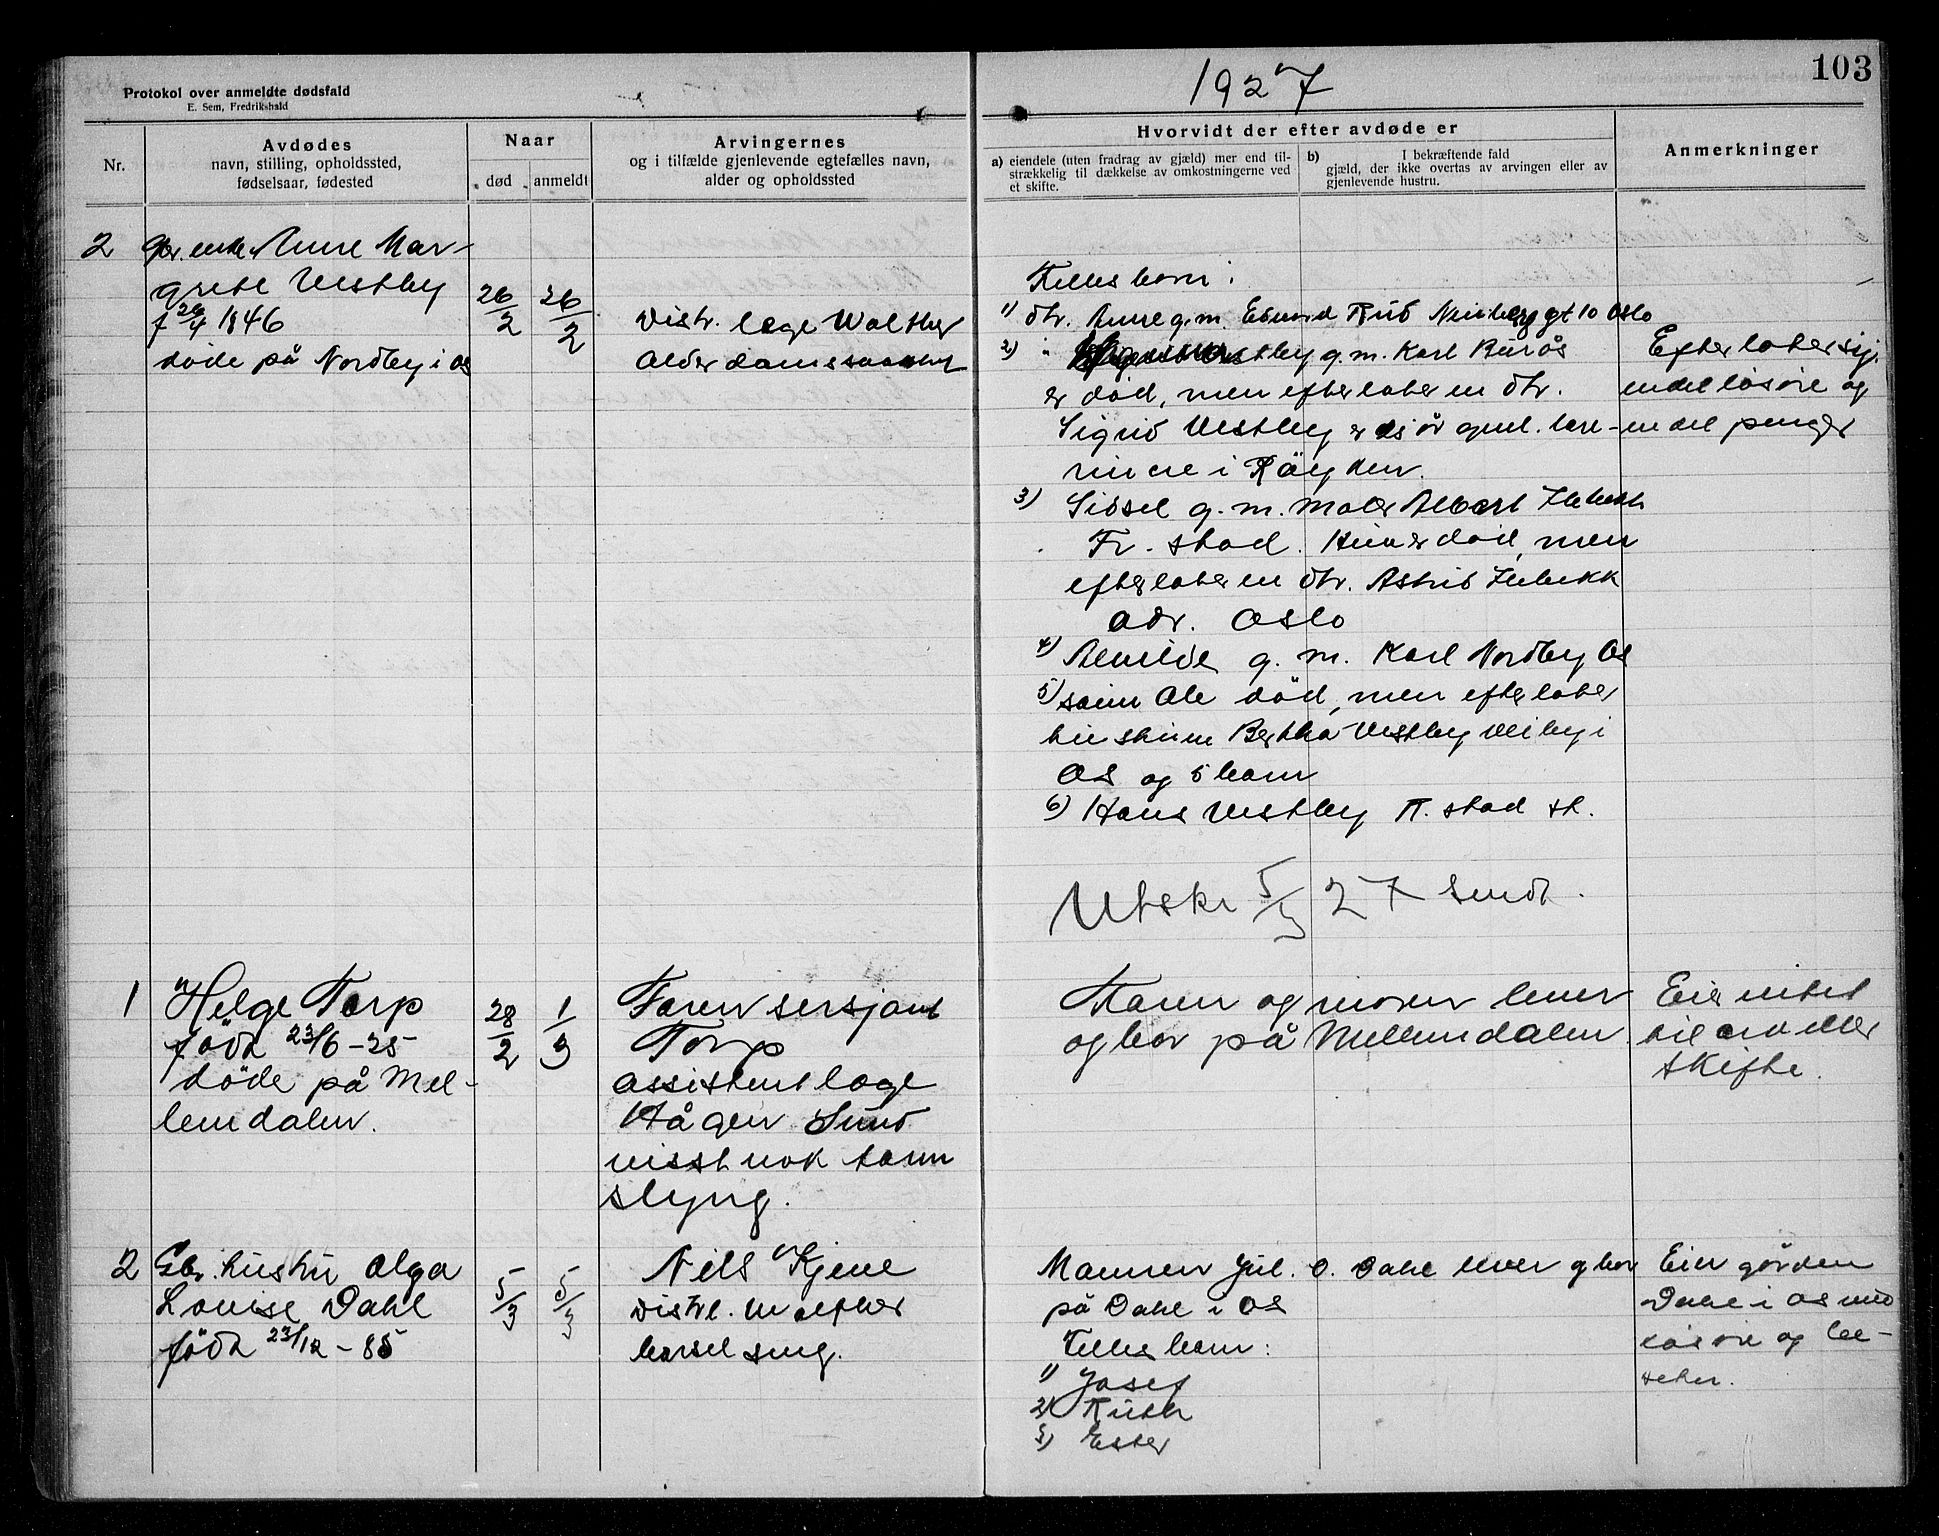 103
1927
Protokol over anmeldte dødsfald
E. Sem, Fredrikshald
Nr.
Avdødes
navn, stilling, opholdssted,
fødselsaar, fødested
Naar
død
anmeldt
Arvingernes
og i tilfælde gjenlevende egtefælles navn,
alder og opholdssted
Hvorvidt der efter avdøde er
a) eiendele (uten fradrag av gjæld) mer end til-
strækkelig til dækkelse av omkostningerne ved
et skifte.
b) I bekræftende fald
gjæld, der ikke overtas av arvingen eller av
gjenlevende hustru.
Anmerkninger
2
enke Anne Mar-
grete Vestby
f 26/4 1846
døde på Nordby i Os
26/2
26/2
Distr. læge Walther
Alderdomssvakhet
Felles barn:
1) dtr. Anne g. m. Edvind Rud gt 10 Oslo
2) " Vestby g. m. Karl Burås
er död, men efterlater en dtr.
Sigrid Vestby lære-
rinne i Röyken.
3) Sidsel g. m. Maler Albert
Fr. stad. Hun er död, men
efterlater en dtr. Astrid
adr. Oslo
4) g. m. Karl Nordby Os
5) sönn Ole död, men efterlater
hustruen Bertha Vestby i
Os og 5 barn
6) Hans Vestby Fr. stad st.
Efterlater sig
endel lösöre og
endel penger
Utskr 5/3 27 sendt.
1
Helge Torp
född 23/6-25
döde på Mel-
lemdalen.
28/2
1/3
Faren sersjant
Torp
assistentlæge
Hågen Sund
visstnok tarm
slyng.
Faren og moren lever
og bor på Mellemdalen.
Eier intet
til arv eller
skifte.
2
Gbr. hustru Olga
Louise Dahl
född 23/12-85
5/3
5/3
Nils Kjene
distrl. Walther
barselseng.
Mannen Jul. O. Dahl lever og bor
på Dahl i Os
Felles barn:
1) Josef
2) Ruth
3) Ester
Eier gården
Dahl i Os med
lösöre og be-
setn.